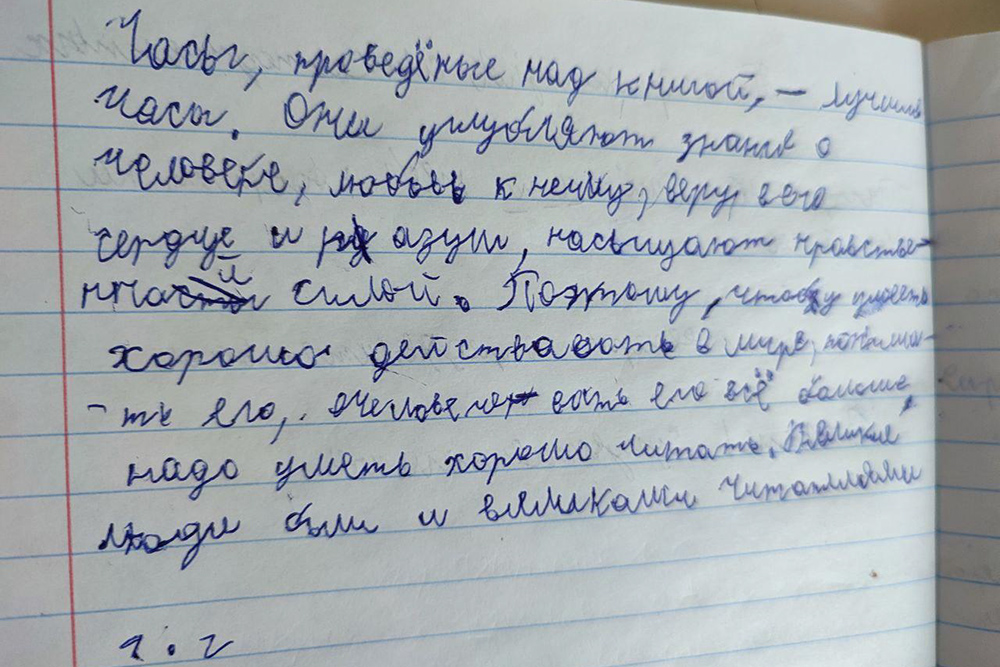 Часы, проведёные над книгой, – лучшие
часы. Они углубляют знания о
человеке, любовь к нему, веру в его
сердце и разум, насыщают нравстве-
нной силой. Поэтому, чтобы уметь
хорошо действовать в мире, понима-
-ть его, очеловечевать его всё больше,
надо уметь хорошо читать. Великие
люди были и великими читателями
1. г